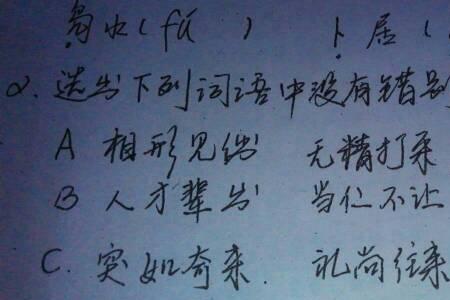 (fú ) 卜居(
2. 选出下列词语中没有错别
A 相形见绌 无精打采
B 人才辈出 当仁不让
C. 突如奇来. 礼尚往来